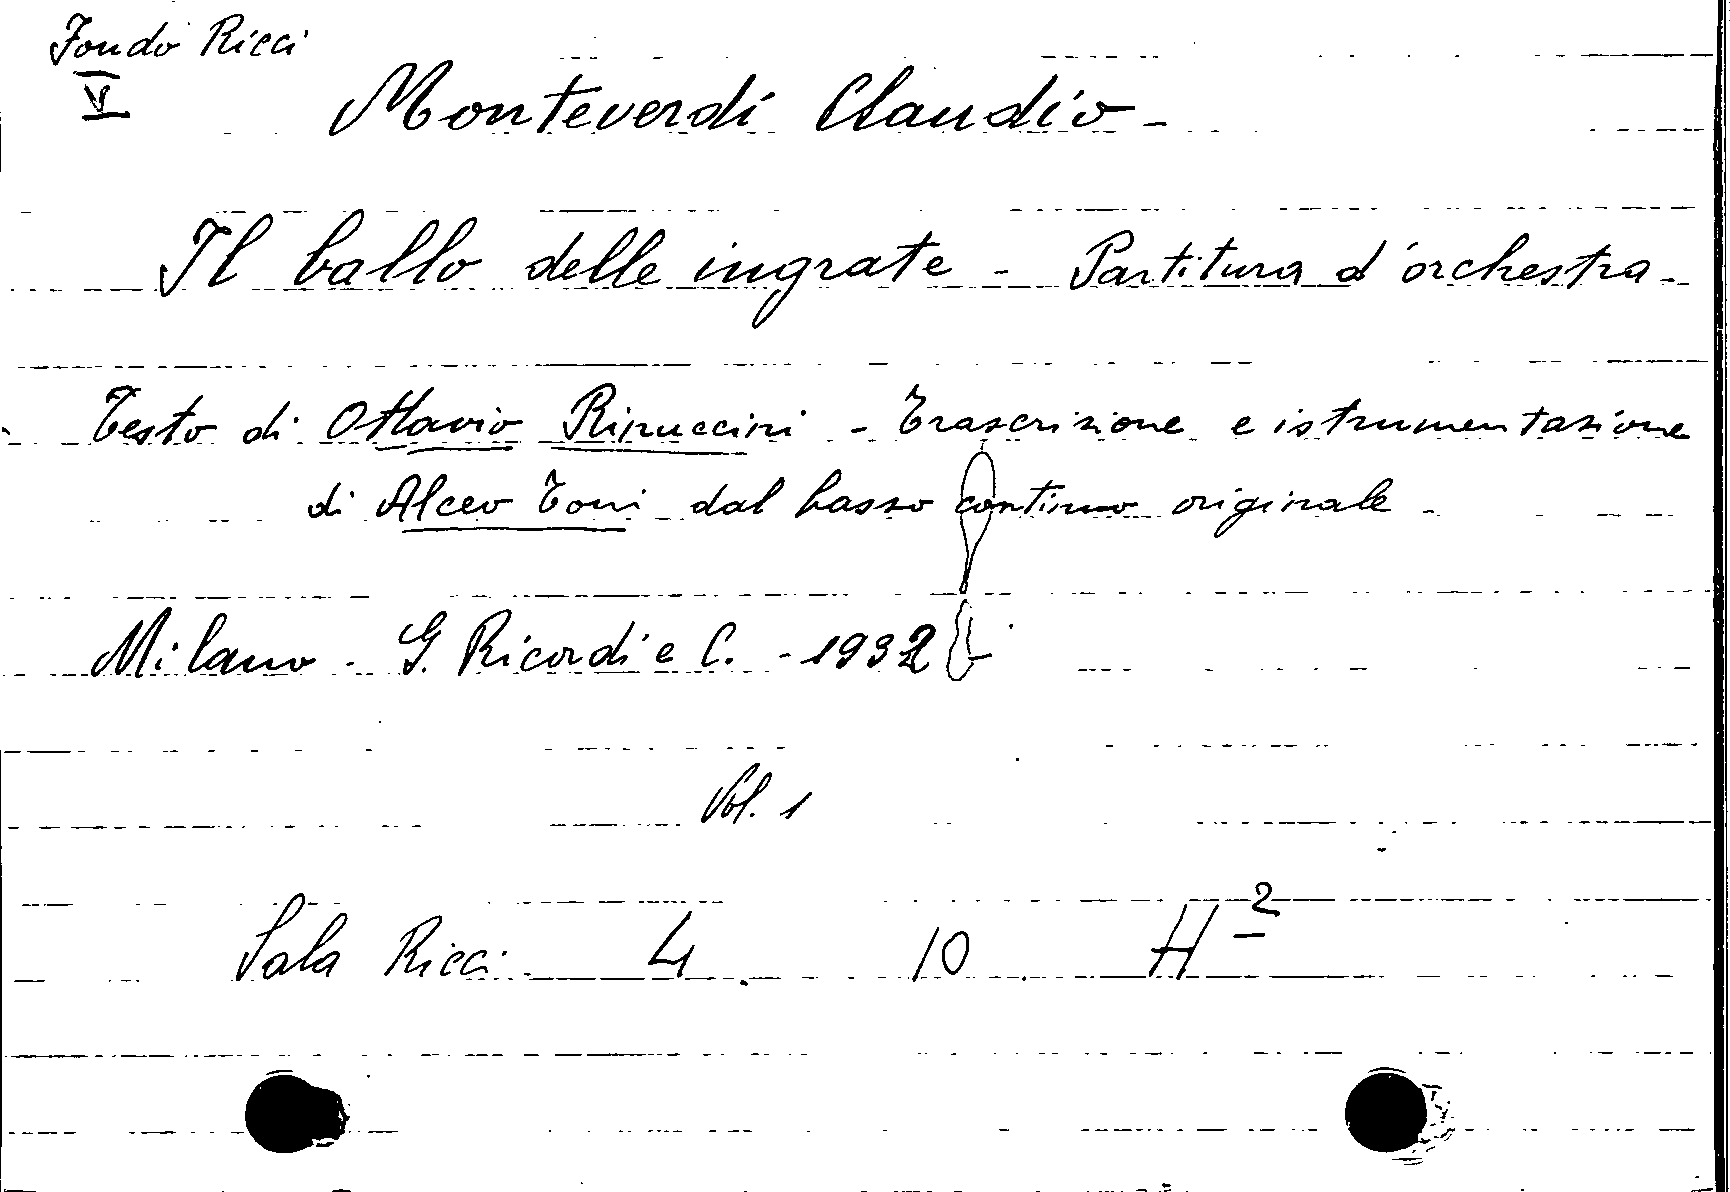 Fondo Ricci
V
Monteverdi Claudio -
Il ballo delle ingrate - Partitura d'orchestra -
Testo di Ottavio Rinuccini - Trascrizione e istrumentazione
di Alceo Toni dal basso continuo originale -
Milano - G. Ricordi e C. - 1932
Vol. 1
Sala Ricci 4 10 H 2